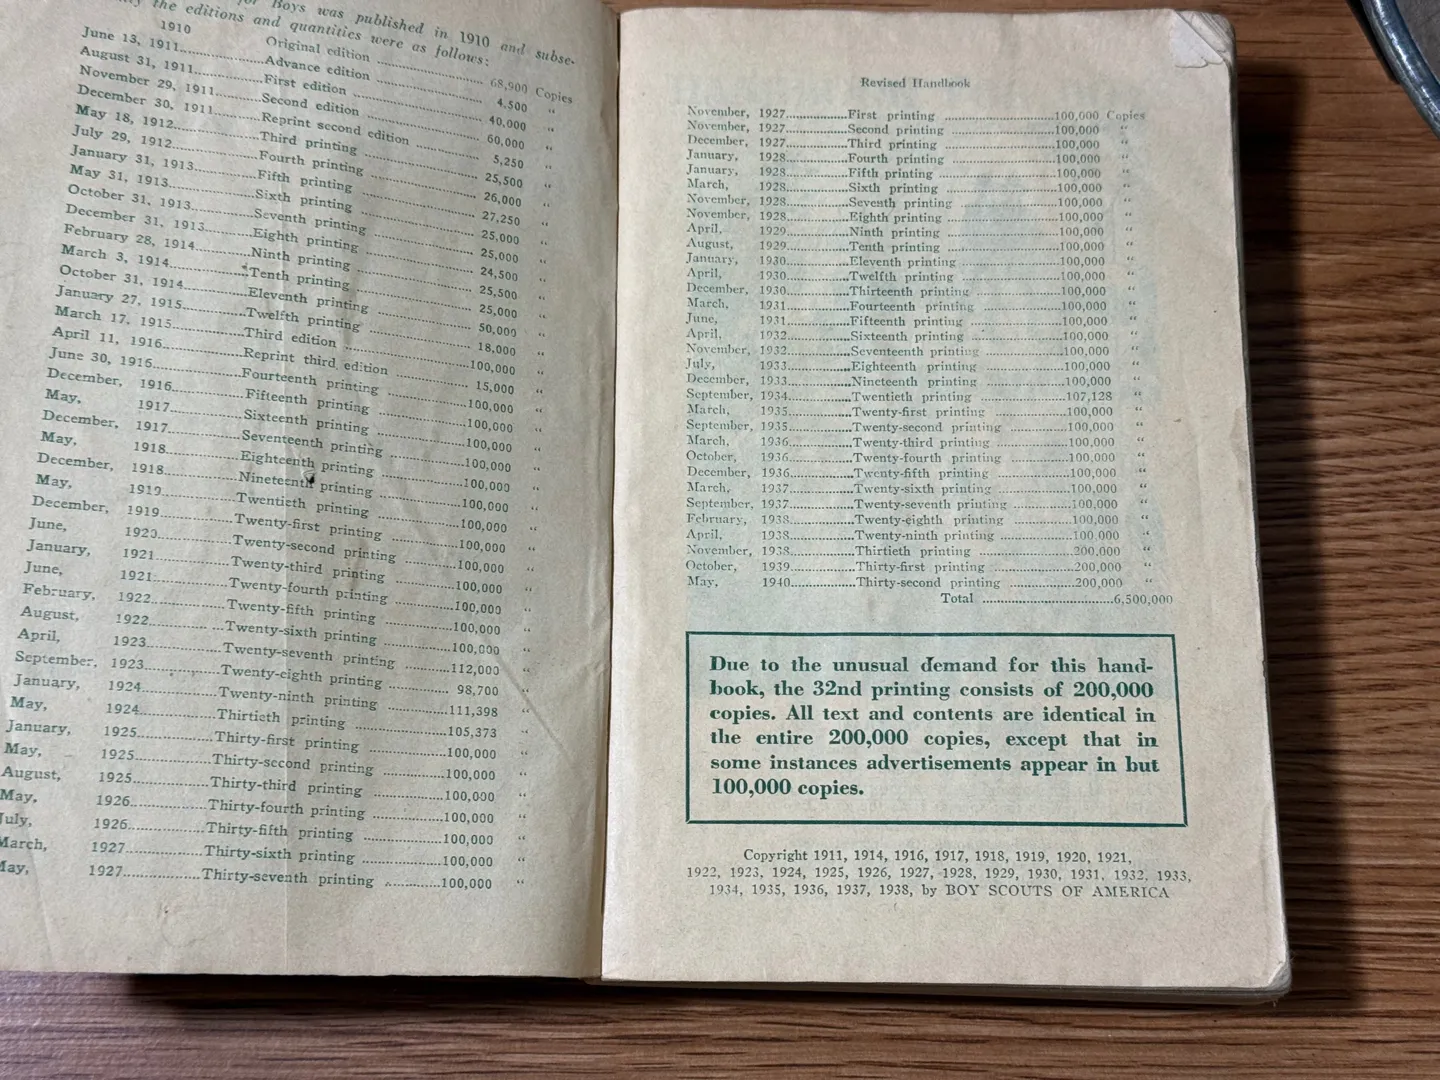 for Boys was published in 1910 and subse-
the editions and quantities were as follows:
1910 Original edition 68,900 Copies
June 13, 1911 Advance edition 4,500 "
August 31, 1911 First edition 40,000 "
November 29, 1911 Second edition 60,000 "
December 30, 1911 Reprint second edition 5,250 "
May 18, 1912 Third printing 25,500 "
July 29, 1912 Fourth printing 26,000 "
January 31, 1913 Fifth printing 27,250 "
May 31, 1913 Sixth printing 25,000 "
October 31, 1913 Seventh printing 25,000 "
December 31, 1913 Eighth printing 24,500 "
February 28, 1914 Ninth printing 25,500 "
March 3, 1914 Tenth printing 25,000 "
October 31, 1914 Eleventh printing 50,000 "
January 27, 1915 Twelfth printing 18,000 "
March 17, 1915 Third edition 100,000 "
April 11, 1916 Reprint third edition 15,000 "
June 30, 1916 Fourteenth printing 100,000 "
December, 1916 Fifteenth printing 100,000 "
May, 1917 Sixteenth printing 100,000 "
December, 1917 Seventeenth printing 100,000 "
May, 1918 Eighteenth printing 100,000 "
December, 1918 Nineteenth printing 100,000 "
May, 1919 Twentieth printing 100,000 "
December, 1919 Twenty-first printing 100,000 "
June, 1920 Twenty-second printing 100,000 "
January, 1921 Twenty-third printing 100,000 "
June, 1921 Twenty-fourth printing 100,000 "
February, 1922 Twenty-fifth printing 100,000 "
August, 1922 Twenty-sixth printing 100,000 "
April, 1923 Twenty-seventh printing 112,000 "
September, 1923 Twenty-eighth printing 98,700 "
January, 1924 Twenty-ninth printing 111,398 "
May, 1924 Thirtieth printing 105,373 "
January, 1925 Thirty-first printing 100,000 "
May, 1925 Thirty-second printing 100,000 "
August, 1925 Thirty-third printing 100,000 "
May, 1926 Thirty-fourth printing 100,000 "
July, 1926 Thirty-fifth printing 100,000 "
March, 1927 Thirty-sixth printing 100,000 "
May, 1927 Thirty-seventh printing 100,000 "
Revised Handbook
November, 1927 First printing 100,000 Copies
November, 1927 Second printing 100,000 "
December, 1927 Third printing 100,000 "
January, 1928 Fourth printing 100,000 "
January, 1928 Fifth printing 100,000 "
March, 1928 Sixth printing 100,000 "
November, 1928 Seventh printing 100,000 "
November, 1928 Eighth printing 100,000 "
April, 1929 Ninth printing 100,000 "
August, 1929 Tenth printing 100,000 "
January, 1930 Eleventh printing 100,000 "
April, 1930 Twelfth printing 100,000 "
December, 1930 Thirteenth printing 100,000 "
March, 1931 Fourteenth printing 100,000 "
June, 1931 Fifteenth printing 100,000 "
April, 1932 Sixteenth printing 100,000 "
November, 1932 Seventeenth printing 100,000 "
July, 1933 Eighteenth printing 100,000 "
December, 1933 Nineteenth printing 100,000 "
September, 1934 Twentieth printing 107,128 "
March, 1935 Twenty-first printing 100,000 "
September, 1935 Twenty-second printing 100,000 "
March, 1936 Twenty-third printing 100,000 "
October, 1936 Twenty-fourth printing 100,000 "
December, 1936 Twenty-fifth printing 100,000 "
March, 1937 Twenty-sixth printing 100,000 "
September, 1937 Twenty-seventh printing 100,000 "
February, 1938 Twenty-eighth printing 100,000 "
April, 1938 Twenty-ninth printing 100,000 "
November, 1938 Thirtieth printing 200,000 "
October, 1939 Thirty-first printing 200,000 "
May, 1940 Thirty-second printing 200,000 "
Total 6,500,000
Due to the unusual demand for this hand-
book, the 32nd printing consists of 200,000
copies. All text and contents are identical in
the entire 200,000 copies, except that in
some instances advertisements appear in but
100,000 copies.
Copyright 1911, 1914, 1916, 1917, 1918, 1919, 1920, 1921,
1922, 1923, 1924, 1925, 1926, 1927, 1928, 1929, 1930, 1931, 1932, 1933,
1934, 1935, 1936, 1937, 1938, by BOY SCOUTS OF AMERICA